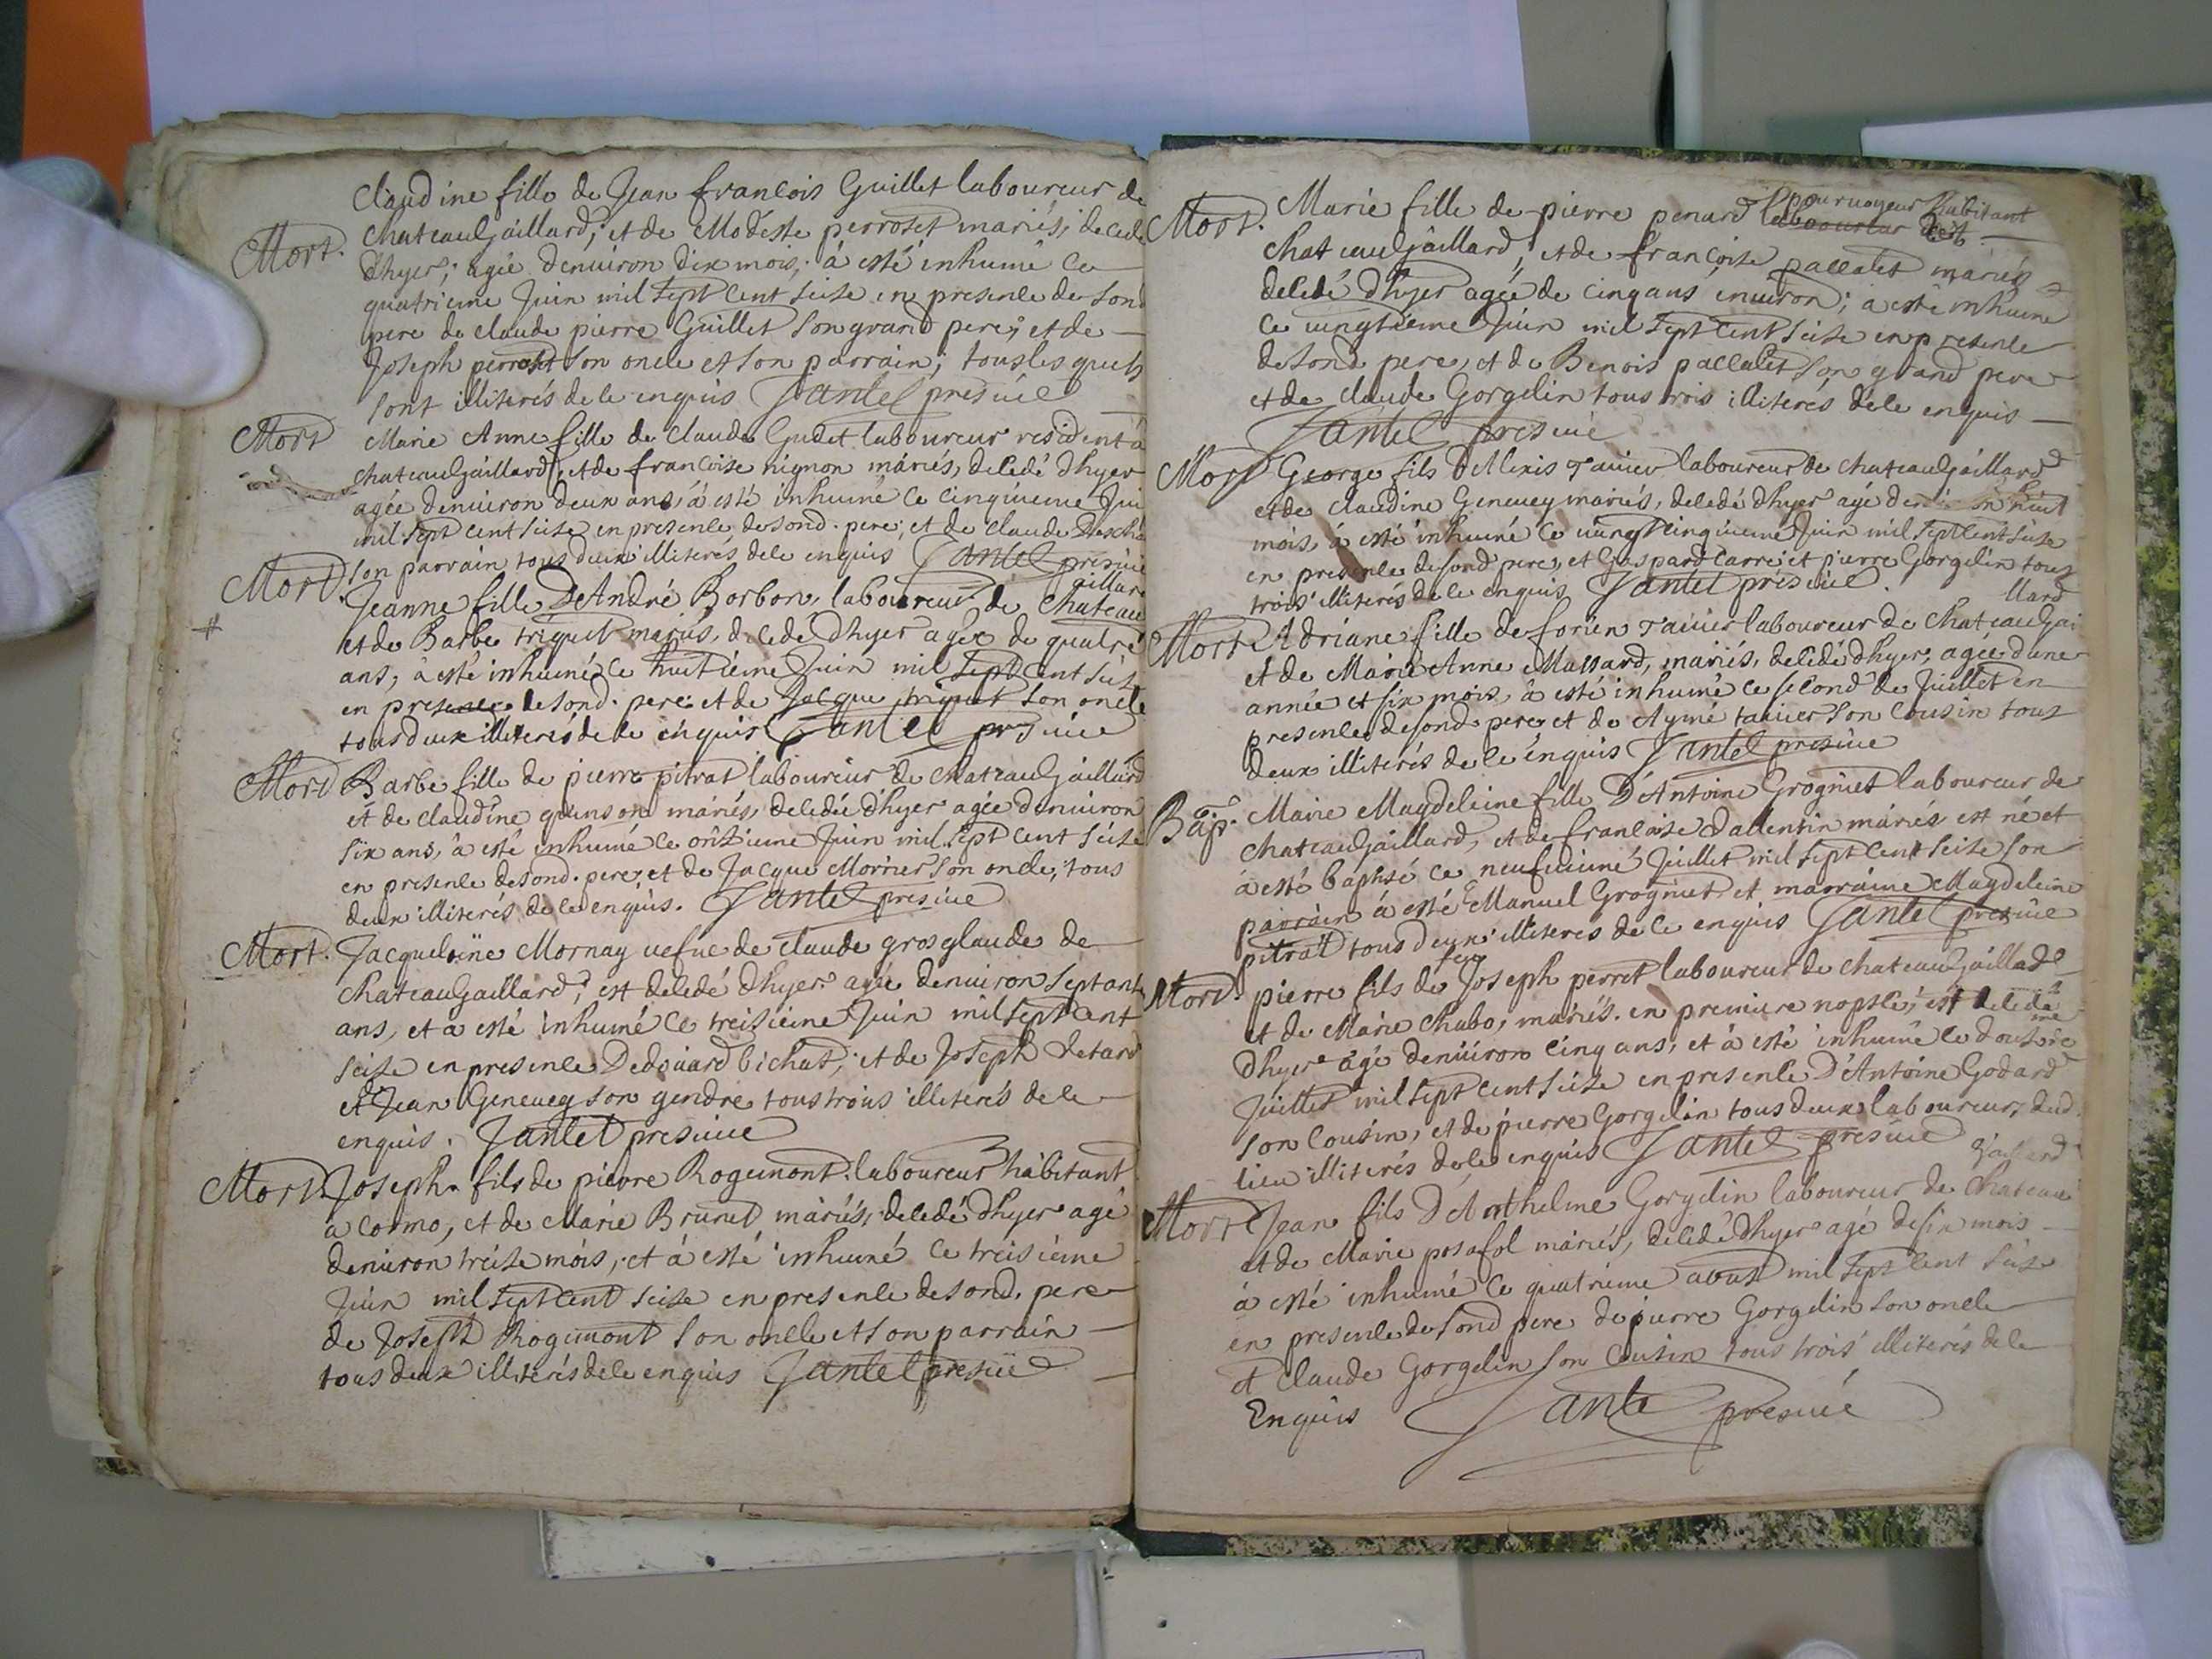 Claudine fille de Jean francois Guillet laboureur de
Mort. chateauGaillard; et de Modeste perroset mariés, decede
dhyer; agée denuiron dix mois, à esté inhumé ce
quatrieme Juin mil sept cent seise en presence de sond
pere de claude pierre Guillet son grand pere; et de
Joseph perroset son oncle et son parrain; tous les quels
sont illiterés de ce enquis Jantel presuíé
Mort Marie Anne fille de Claude Gudet laboureur resident a
chateauGaillard, et de francoise nignon mariés, decedé dhyer
agée denuiron deux ans, à esté inhumé ce cinquieme Jui
mil sept cent seise en presence de sond. pere; et de claude
son parrain tous deux illiterés de ce enquis Jantel presuié
gaillard
Mort. Jeanne fille D'André Borbon, laboureur de chateau
et de Barbe triquet mariés, decedé dhyer agée de quatre
ans, à esté inhumé ce huitieme Juin mil sept cent seise
en presence de sond. pere et de Jacque triquet son oncle
tous deux illiterés de ce énquis Jantel presuíé
Mort Barbe fille de pierre pitrat laboureur de chateauGaillard
et de claudine quinson mariés, decedée dhyer agée denuiron
six ans, à esté inhumé ce onzieme Juin mil sept cent seise
en presence de sond. pere, et de Jacque Morrier son oncle; tous
deux illiterés de ce enquis. Jantel presuié
Mort. Jacqueloine Mornay uefue de claude grosglaude de
chateauGaillard; est decedé dhyer agée denuiron septante
ans, et a esté inhumé ce treisieme Juin mil sept cent
seise en presence Dedouard bichat; et de Joseph
et Jean Geneuey son gendre tous trois illiterés de ce
enquis. Jantel presuiié
Mort. Joseph fils de pierre Rogemont laboureur habitant
a cormo, et de Marie Brunet mariés, decedé dhyer agé
denuiron treise mois, et à esté inhumé ce treisieme
Juin mil sept cent seise en presence de sond. pere
de Joseph Rogimont son oncle et son parrain
tous deux illiterés de ce enquis Jantel presuié
pouruoyeur habitant
Mort. Marie fille de pierre penard laboureur de
chateauGaillard, et de francoise paccalet mariés
decedé dhyer agée de cinq ans enuiron; à esté inhumé
ce uingtieme Juin mil sept cent seise en presence
de sond pere, et de Benois paccalet son grand pere
et de claude Gorgelin tous trois illiterés de ce enquis
Jantel presuié
Mort George fils D'Alexis Tauier laboureur de chateauGaillard
et de claudine Geneuey mariés, decedé dhyer agé huit
mois, à esté inhumé ce uingt cinquieme Juin mil sept cent seise
en presence de sond pere, et Gaspard Carre et pierre Gorgelin tous
trois illiterés de ce enquis Jantel presuié
llard
Mort Adriane fille de forien Tauier laboureur de chateauGai
et de Marie Anne Massard, mariés, decedé dhyer, agée dune
année et six mois, à esté inhumé ce second de Juillet en
presence de sond. pere et de Aymé tauier son cousin tous
deux illiterés de ce énquis Jantel presuié
Bap. Marie Magdeleine fille D'Antoine Grogniet laboureur de
chateauGaillard, et de francoise Dallentin mariés est né et
à esté baptisé ce neufuiémé Juillet mil sept cent seise son
parrain à esté Emanuel Grogniet et marraine Magdeleine
pitrat tous deux illiteres de ce enquis Jantel presuié
feu
Mort. pierre fils de Joseph perret laboureur de chateauGaillard
et de Marie chabo, mariés. en premiere nopsce, est decedé
dhyer agé denuiron cinq ans, et à esté inhumé ce douseme
Juillet mil sept cent seise en presence D'Antoine Godard
son Cousin, et de pierre Gorgelin tous deux laboureurs dud.
lieu illiterés de ce enquis Jantel presuié
Gaillard
Mort Jean fils D'Anthelme Gorgelin laboureur de chateau
et de Marie posafol mariés, decedé dhyer agé de six mois
à esté inhumé ce quatrieme aoust mil sept cent seise
en presence de sond pere de pierre Gorgelin son oncle
et claude Gorgelin son Cousin tous trois illiterés de ce
Enquis Jante presuié